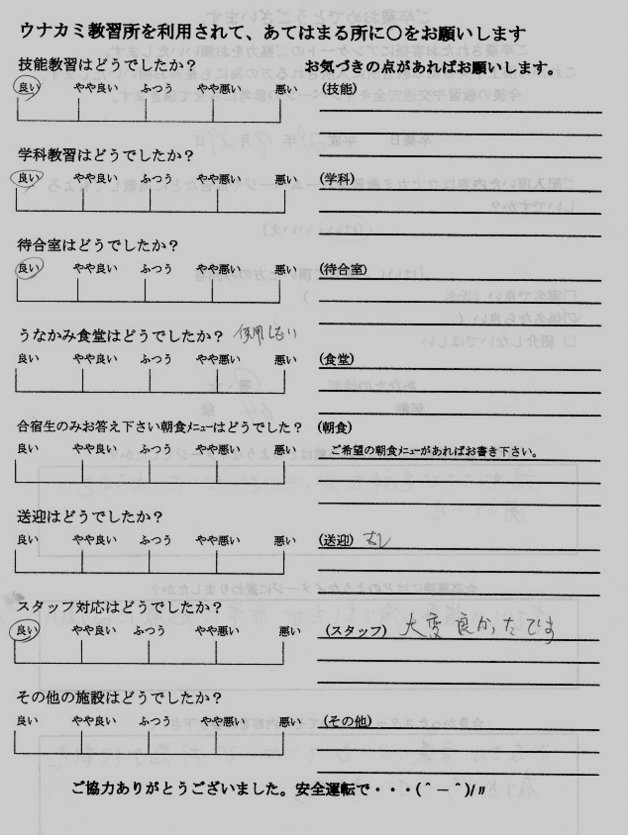 ウナカミ教習所を利用されて、あてはまる所に〇をお願いします
技能教習はどうでしたか？
お気づきの点があればお願いします。
良い やや良い ふつう やや悪い 悪い
(技能)
学科教習はどうでしたか？
良い やや良い ふつう やや悪い 悪い
(学科)
待合室はどうでしたか？
良い やや良い ふつう やや悪い 悪い
(待合室)
うなかみ食堂はどうでしたか？
良い やや良い ふつう やや悪い 悪い
(食堂)
合宿生のみお答え下さい朝食ﾒﾆｭｰはどうでしたか？
(朝食)
良い やや良い ふつう やや悪い 悪い
ご希望の朝食ﾒﾆｭｰがあればお書き下さい。
送迎はどうでしたか？
良い やや良い ふつう やや悪い 悪い
(送迎)
スタッフ対応はどうでしたか？
良い やや良い ふつう やや悪い 悪い
(スタッフ) 大変良かったです
その他の施設はどうでしたか？
良い やや良い ふつう やや悪い 悪い
(その他)
ご協力ありがとうございました。安全運転で・・・(＾－＾)/〃